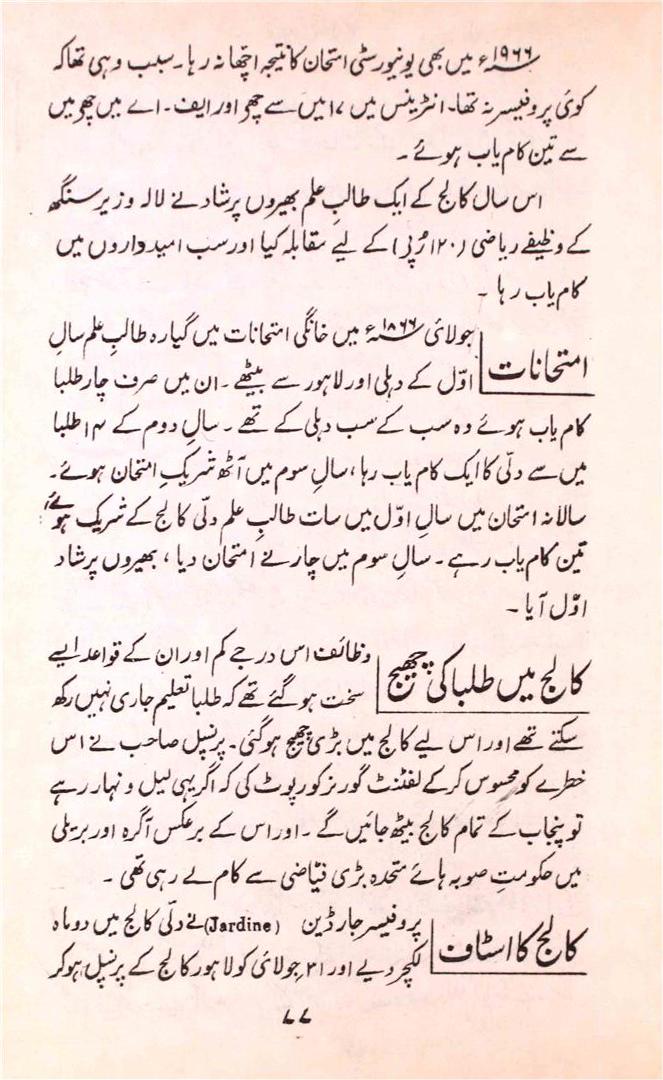 ۱۹۶۶ء میں بھی یونیورسٹی امتحان کا نتیجہ اچھا نہ رہا۔ سبب وہی تھا کہ
کوئی پروفیسر نہ تھا۔ انٹرینس میں ۱۷ میں سے چھ اور ایف۔ اے میں چھ میں
سے تین کام یاب ہوئے۔
اس سال کالج کے ایک طالبِ علم بھیروں پرشاد نے لالہ وزیر سنگھ
کے وظیفے ریاضی (۱۲۰ رُپی) کے لیے مقابلہ کیا اور سب امیدداروں میں
کام یاب رہا۔
امتحانات
جولائی ۱۸۶۶ء میں خانگی امتحانات میں گیارہ طالبِ علم سالِ
اوّل کے دہلی اور لاہور سے بیٹھے۔ ان میں صرف چار طلبا
کام یاب ہوئے وہ سب کے سب دہلی کے تھے۔ سالِ دوم کے ۱۴ طلبا
میں سے دلّی کا ایک کام یاب رہا، سالِ سوم میں آٹھ شریکِ امتحان ہوئے۔
سالانہ امتحان میں سالِ اوّل میں سات طالبِ علم دلّی کالج کے شریک ہوئے،
تین کام یاب رہے۔ سالِ سوم میں چار نے امتحان دیا، بھیروں پرشاد
اوّل آیا۔
کالج میں طلبا کی چھیج
وظائف اس درجے کم اور ان کے قواعد ایسے
سخت ہو گئے تھے کہ طلبا تعلیم جاری نہیں رکھ
سکتے تھے اور اس لیے کالج میں بڑی چھیج ہو گئی۔ پرنسپل صاحب نے اس
خطرے کو محسوس کر کے لفٹنٹ گورنر کو رپوٹ کی کہ اگر یہی لیل و نہار رہے
تو پنجاب کے تمام کالج بیٹھ جائیں گے۔ اور اس کے برعکس آگرہ اور بریلی
میں حکومتِ صوبہ ہائے متحدہ بڑی فیّاضی سے کام لے رہی تھی۔
کالج کا اسٹاف
پروفیسر جارڈین (Jardine) نے دلّی کالج میں دو ماہ
لکچر دیے اور ۳۱ جولائی کو لاہور کالج کے پرنسپل ہو کر
۷۷